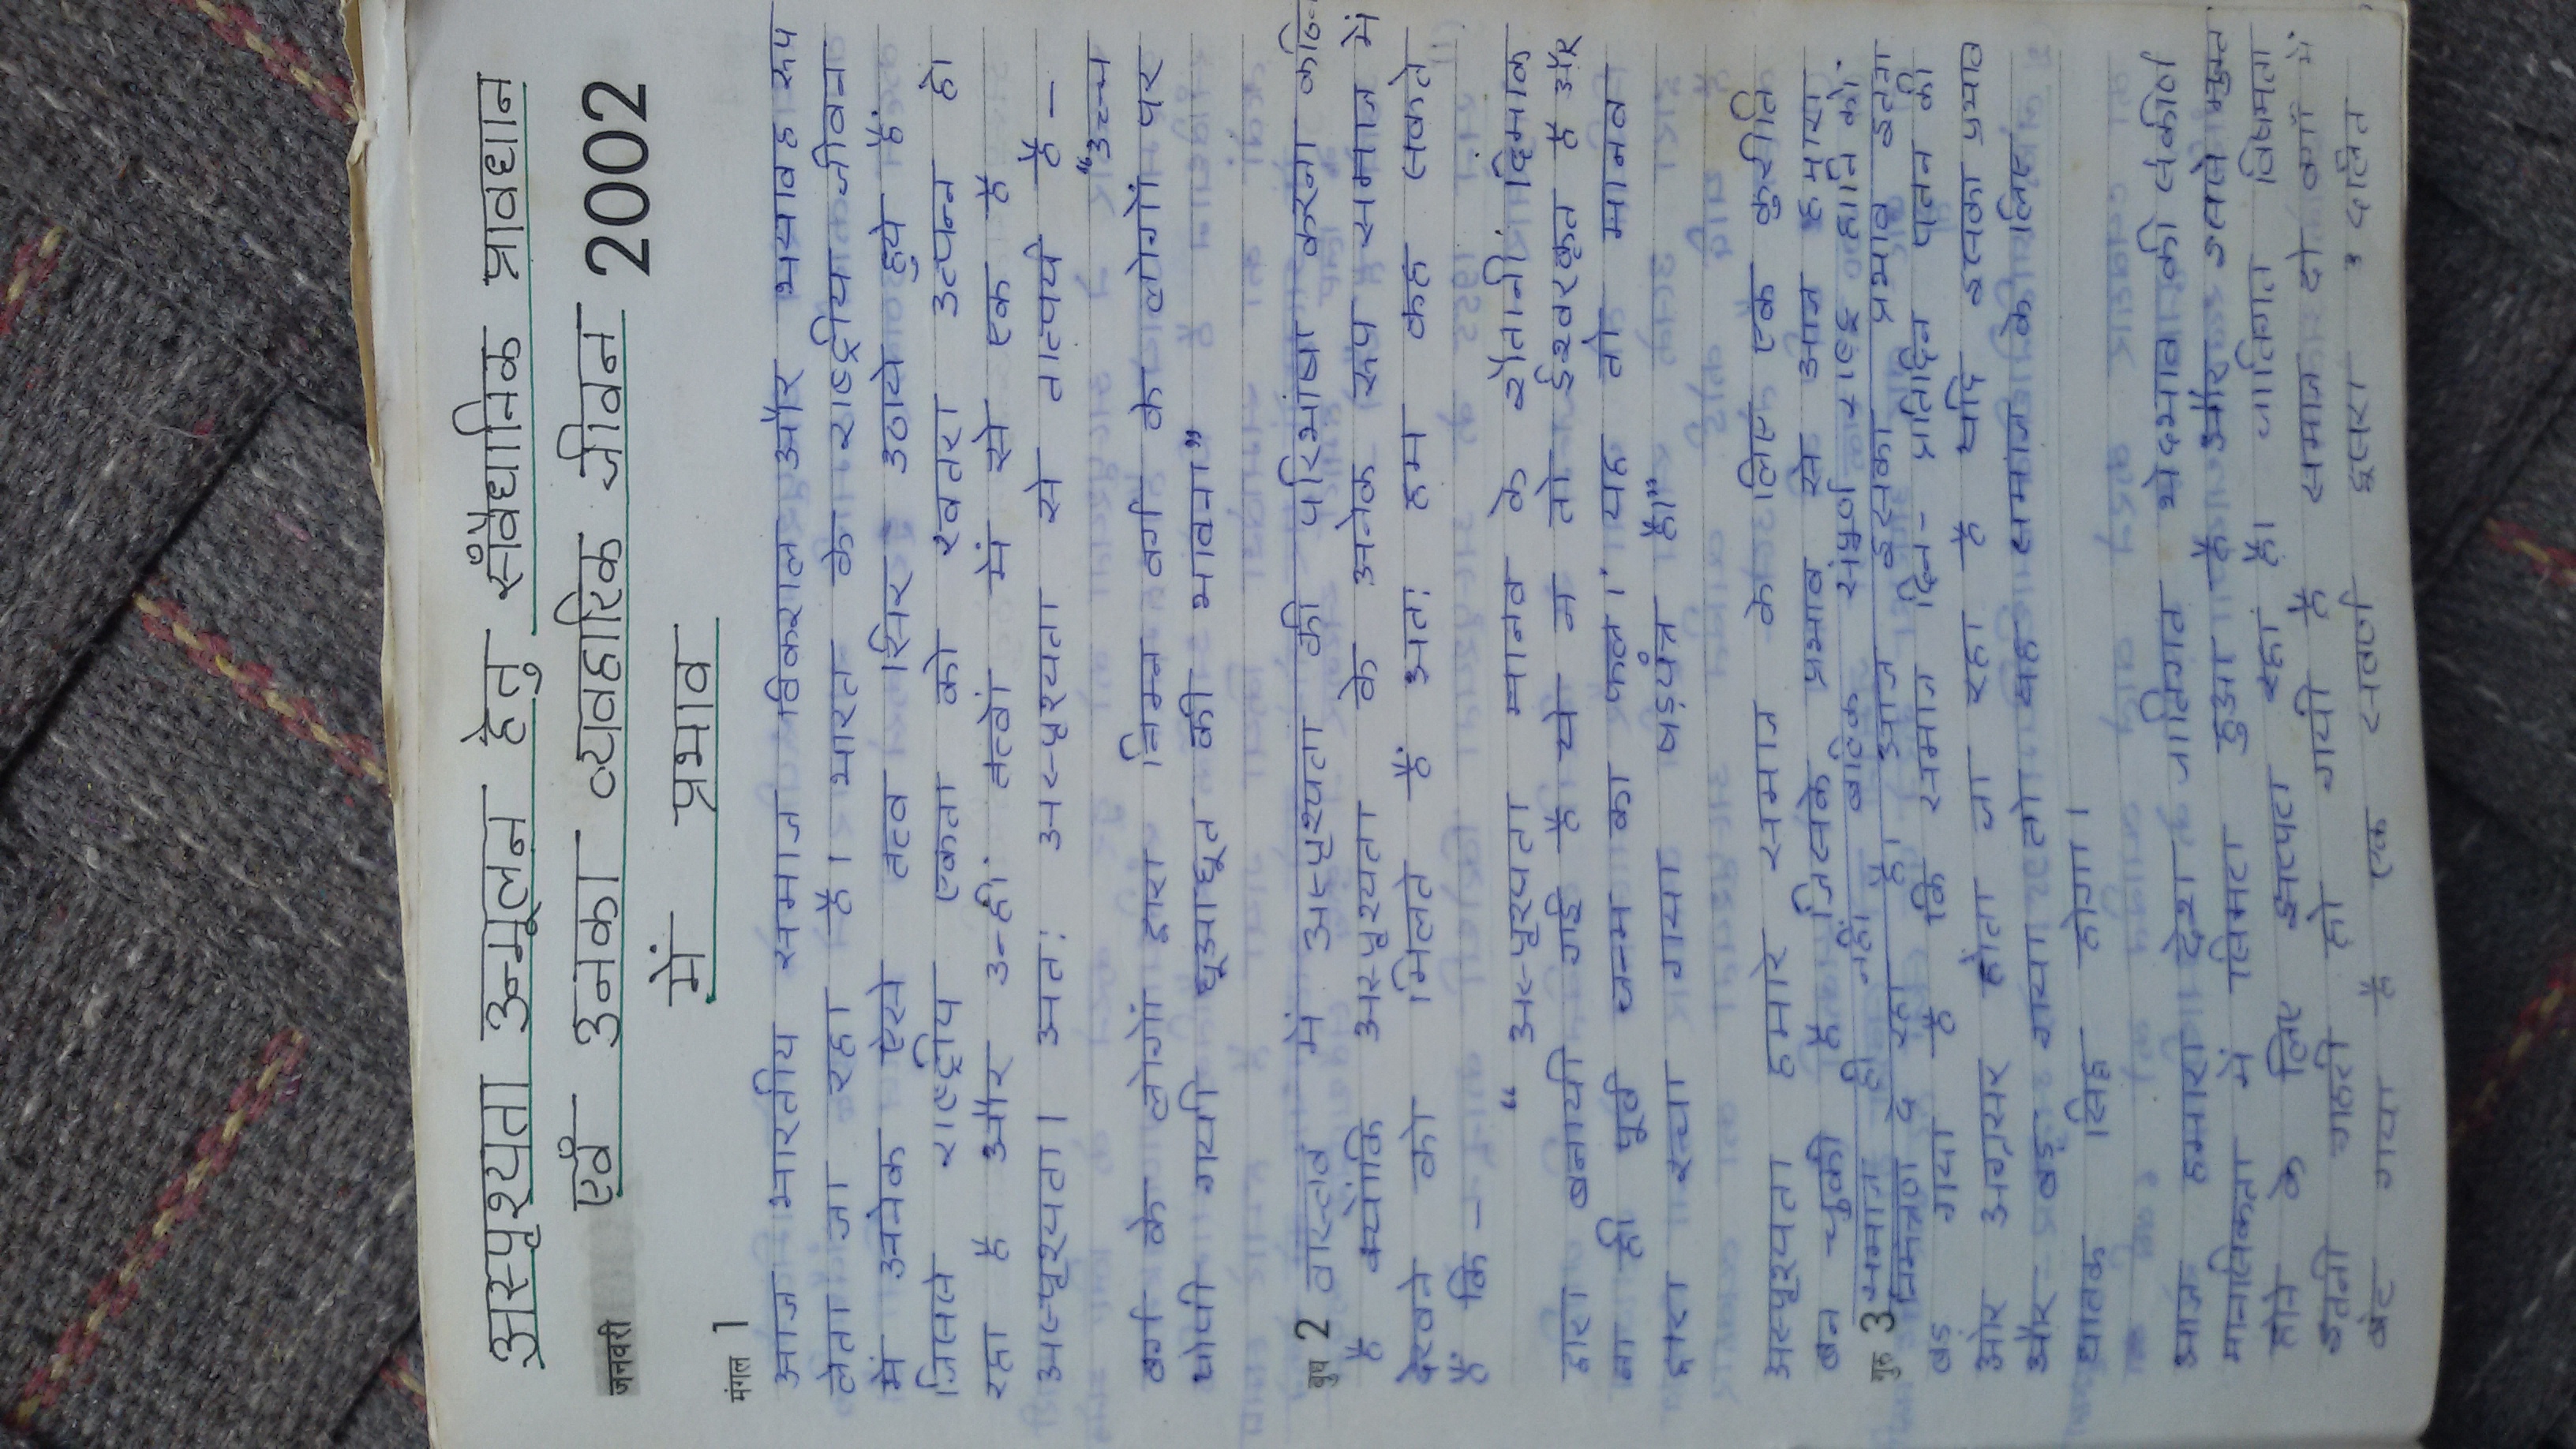 अस्पृश्यता उन्मूलन हेतु संवैधानिक प्रावधान
एवं उनका व्यवहारिक जीवन
जनवरी 2002
में प्रभाव
मंगल 1
आज भारतीय समाज विकराल और भयावह रूप
लेता जा रहा है। भारत के राष्ट्रीय जीवन
में अनेक ऐसे तत्व सिर उठाये हुये हैं
जिससे राष्ट्रीय एकता को खतरा उत्पन्न हो
रहा है और उन्हीं तत्वों में से एक है
अस्पृश्यता। अतः अस्पृश्यता से तात्पर्य है –
"उच्च
वर्ग के लोगों द्वारा निम्न वर्ग के लोगों पर
थोपी गयी छूआछूत की भावना"
बुध 2 वास्तव में अस्पृश्यता की परिभाषा करना कठिन
है क्योंकि अस्पृश्यता के अनेक रूप समाज में
देखने को मिलते हैं अतः हम कह सकते
हैं कि –
" अस्पृश्यता मानव के शैतानी दिमाग
द्वारा बनायी गई है ये न तो ईश्वरकृत है और
ना ही पूर्व जन्म का फल। यह तो मानव
द्वारा रचा गया षड्यंत्र है।"
अस्पृश्यता हमारे समाज के लिए एक कुरीति
बन चुकी है जिसके प्रभाव से आज हमारा
समाज ही नहीं बल्कि संपूर्ण राष्ट्र
गुरु 3 निमंत्रण दे रहा है। आज इसका प्रभाव इतना
बढ़ गया है कि समाज दिन-प्रतिदिन पतन की
ओर अग्रसर होता जा रहा है यदि इसका प्रभाव
और बढ़ता गया तो यह समाज के लिए
घातक सिद्ध होगा।
आज हमारा देश जातिगत भेदभाव की संकीर्ण
मानसिकता में सिमटा हुआ है और इससे मुक्त
होने के लिए छटपटा रहा है। जातिगत विषमता
इतनी गहरी हो गयी है समाज दो वर्गों में
बंट गया है एक सवर्ण दूसरा दलित